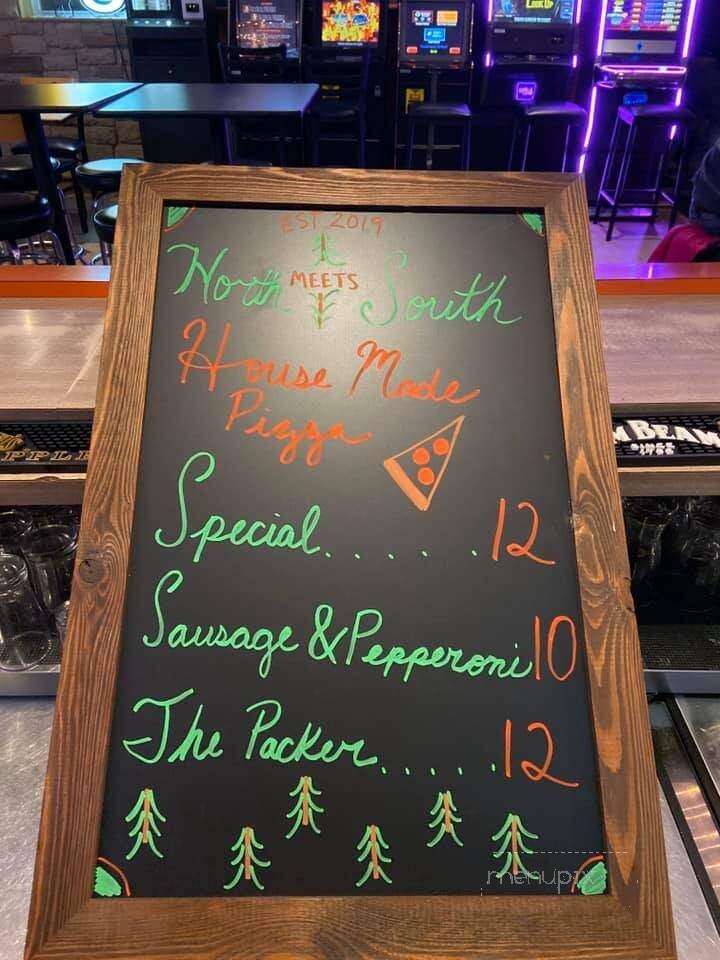 LOOK UP
EST 2019
North MEETS South
House Made
Pizza
BEAM
Special. . . . . .12
Sausage & Pepperoni 10
The Packer. . . . .12
menupix